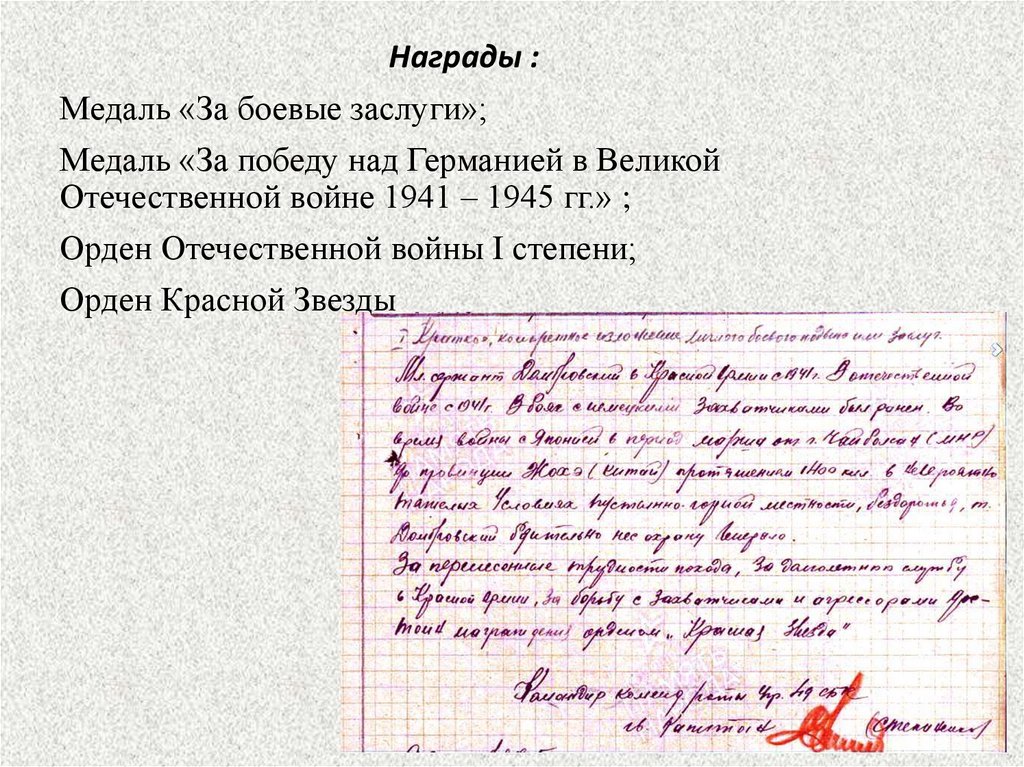 Награды :
Медаль «За боевые заслуги»;
Медаль «За победу над Германией в Великой
Отечественной войне 1941 – 1945 гг.» ;
Орден Отечественной войны I степени;
Орден Красной Звезды
I Краткое, конкретное изложение личного боевого подвига или заслуг.
Мл. сержант Домбровский в Красной Армии с 1941 г. В отечественной
войне с 1941 г. В боях с немецкими захватчиками был ранен. Во
время войны с Японией в период марша от г. Чайболсан (МНР)
до провинции Жохэ (Китай) протяжением 1400 клм. в невероятно
тяжелых условиях пустынно-горной местности, бездорожья, т.
Домбровский бдительно нес охрану Генерала.
За перенесенные трудности похода, за долголетнюю службу
в Красной Армии, за борьбу с захватчиками и агрессорами дос-
тоин награждения орденом „Красная Звезда"
Командир коменд. роты Упр. 49 ск
гв. Капитан